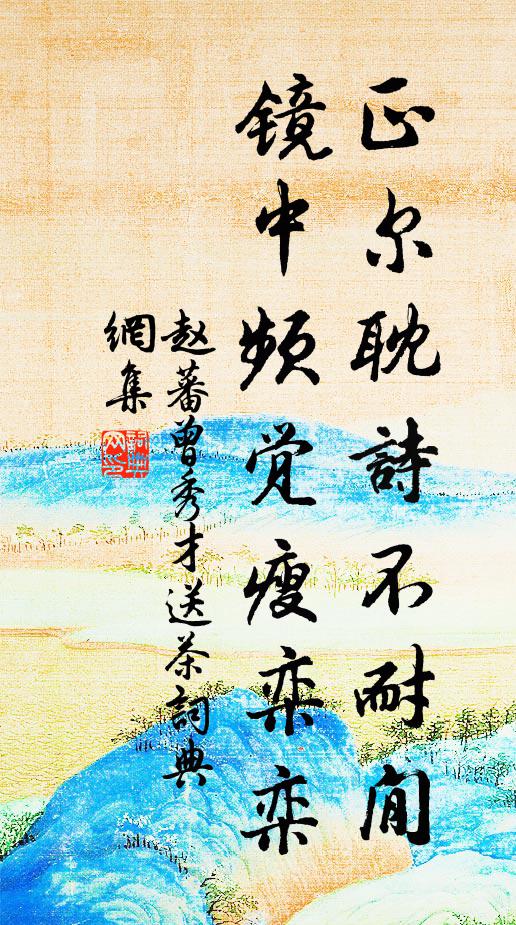 正尔耽詩不耐閒
镜中频觉瘦栾栾
赵蕃曾秀才送茶詞典
網集